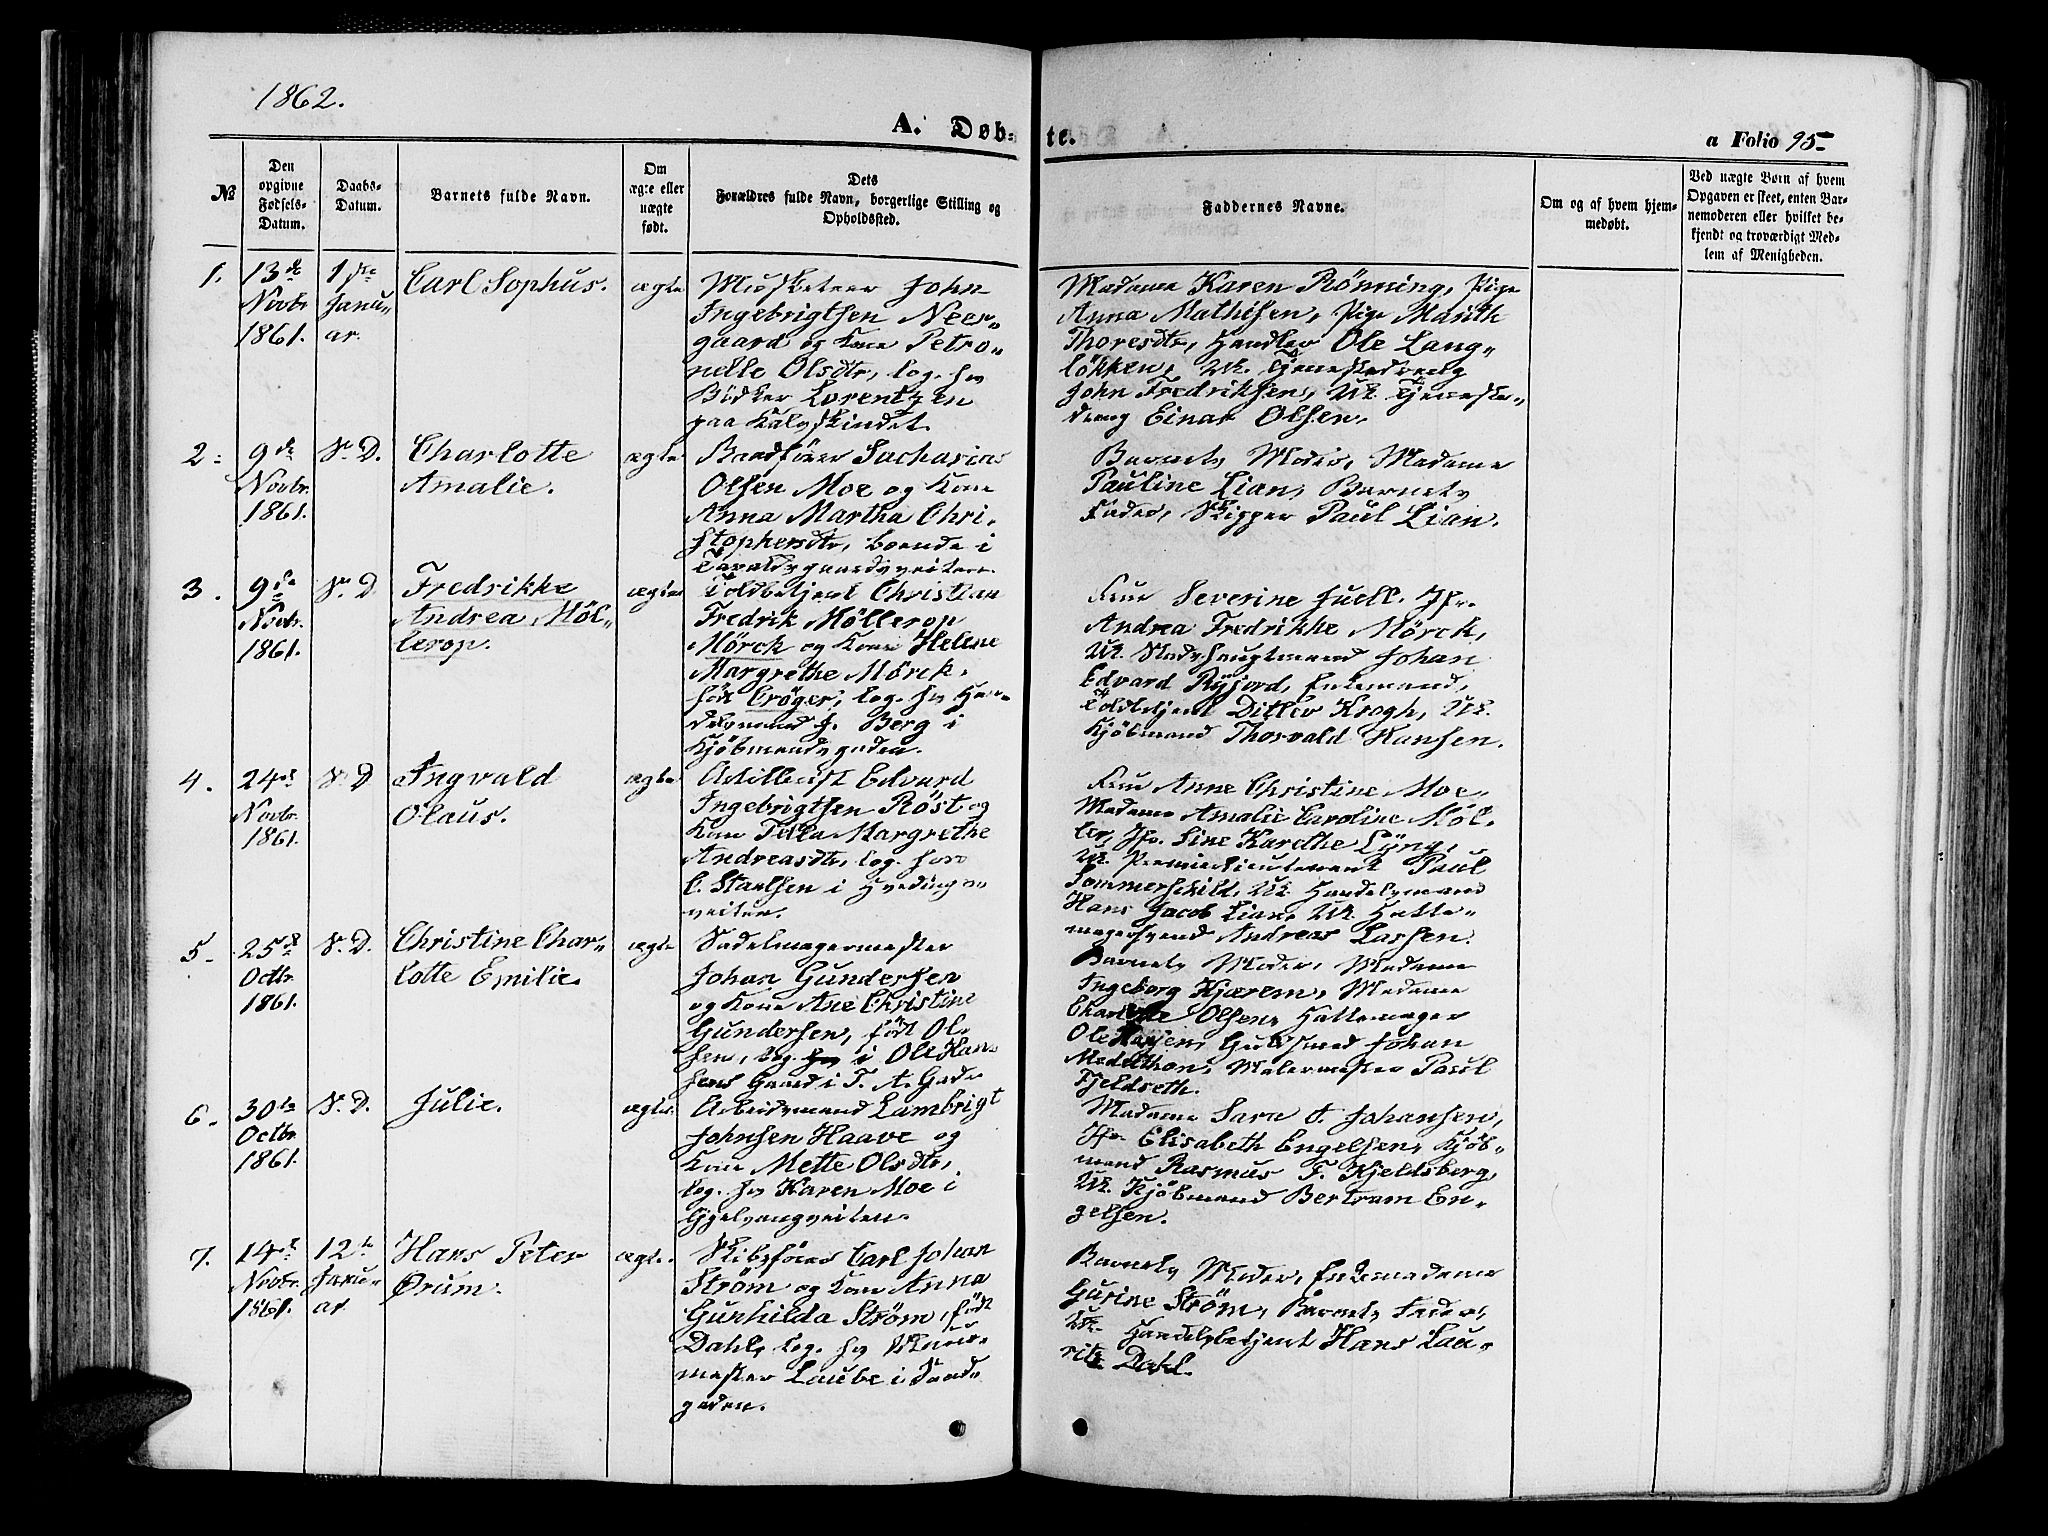 1862.
A. Døb-
te.
a Folio 95
№
Den
opgivne
Fødsels-
Datum.
Daabs-
Datum.
Barnets fulde Navn.
Om
ægte eller
uægte
født.
Dets
Forældres fulde Navn, borgerlige Stilling og
Opholdssted.
Faddernes Navne.
Om og af hvem hjem-
medøbt.
Ved uægte Børn af hvem
Opgaven er skeet, enten Bar-
nemoderen eller hvilket be-
kjendt og troværdigt Med-
lem af Menigheden.
1.
13de
Novbr
1861.
1ste
Janu-
ar.
Carl Sophus.
ægte
Musketeer John
Ingebrigtsen Neer-
gaard og Kone Petro-
nelle Olsdtr, log. hos
Bödker Lorentzen
paa Kalvskindet.
Madame Karen Rönning, Pige
Anna Mathisen, Pige Marith
Thoresdtr, Handler Ole Lang-
lökken, Uk. Tjenestedreng
John Fredriksen, Uk. Tjeneste-
dreng Einar Olsen.
2.
9de
Novbr.
1861.
S. D.
Charlotte
Amalie.
ægte
Baadförer Sacharias
Olsen Moe og Kone
Anna Martha Chri-
stophersdtr, boende i
Taraldsgaardsveiten.
Barnets Moder, Madame
Pauline Lian, Barnets
Fader, Skipper Paul Lian.
3.
9de
Novbr.
1861.
S. D
Fredrikke
Andrea Möl-
lerop.
ægte
Toldbetjent Christian
Fredrik Möllerop
Mörck og Kone Helene
Margrethe Mörck,
föd Cröger, log. hos Han-
delsmand J. Berg i
Kjöbmandsgaden.
Frue Severine Juell, Jfr.
Andrea Fredrikke Mörck,
Uk. Stadshauptmand Johan
Edvard Rysjord, Enkemand,
Toldbetjent Ditlev Krogh, Uk.
Kjöbmand Thorvald Hansen.
4.
24de
Novbr.
1861.
S. D
Ingvald
Olaus.
ægte
Artillerist Edvard
Ingebrigtsen Röst og
Kone Margrethe
Andreasdtr, log. hos
C. Staalsen i Hvedings-
veiten.
Frue Anne Christine Moe,
Madame Amalie Caroline Möl-
ler, Jfr. Sine Kardthe Lyng,
Uk. Premierlieutenant Paul
Sommerschild, Uk. Handelsmand
Hans Jacob Lian, Uk. Hatte-
magersvend Andreas Lassen.
5.
25de
Octbr.
1861.
S. D.
Christine Char-
lotte Emilie.
ægte
Sadelmagermester
Johan Gundersen
og Kone Ane Christine
Gundersen, födt Ol-
sen, log. hos i Ole Han-
sens Gaard i T. A. Gade
Barnets Moder, Madame
Ingeborg Kjærem, Madame
Charlotte Olsen, Hattemager
Ole Hansen, Guldsmed Johan
Madelthon, Malermester Paul
Fjeldseth.
6.
30te
Octbr.
1861.
S. D.
Julie.
ægte.
Arbeidsmand Lambrigt
Johnsen Haave og
Kone Mette Olsdtr,
log. hos Karen Moe i
Gjelvangveiten.
Madame Sara J. Johansen,
Jfr. Elisabeth Engelsen, Kjöb-
mand Rasmus F. Kjeldsberg,
Uk. Kjöbmand Bertram En-
gelsen.
7.
14de
Novbr.
1861.
12te
Janu-
ar.
Hans Peter
Ørum.
ægte.
Skibsförer Carl Johan
Ström og Kone Anna
Gunhilda Ström, födt
Dahl, log. hos Muur-
mester Laube i Sand-
gaden.
Barnets Moder, Enkemadame
Gurine Ström, Barnets Fader,
Uk. Handelsbetjent Hans Lau-
ritz Dahl.